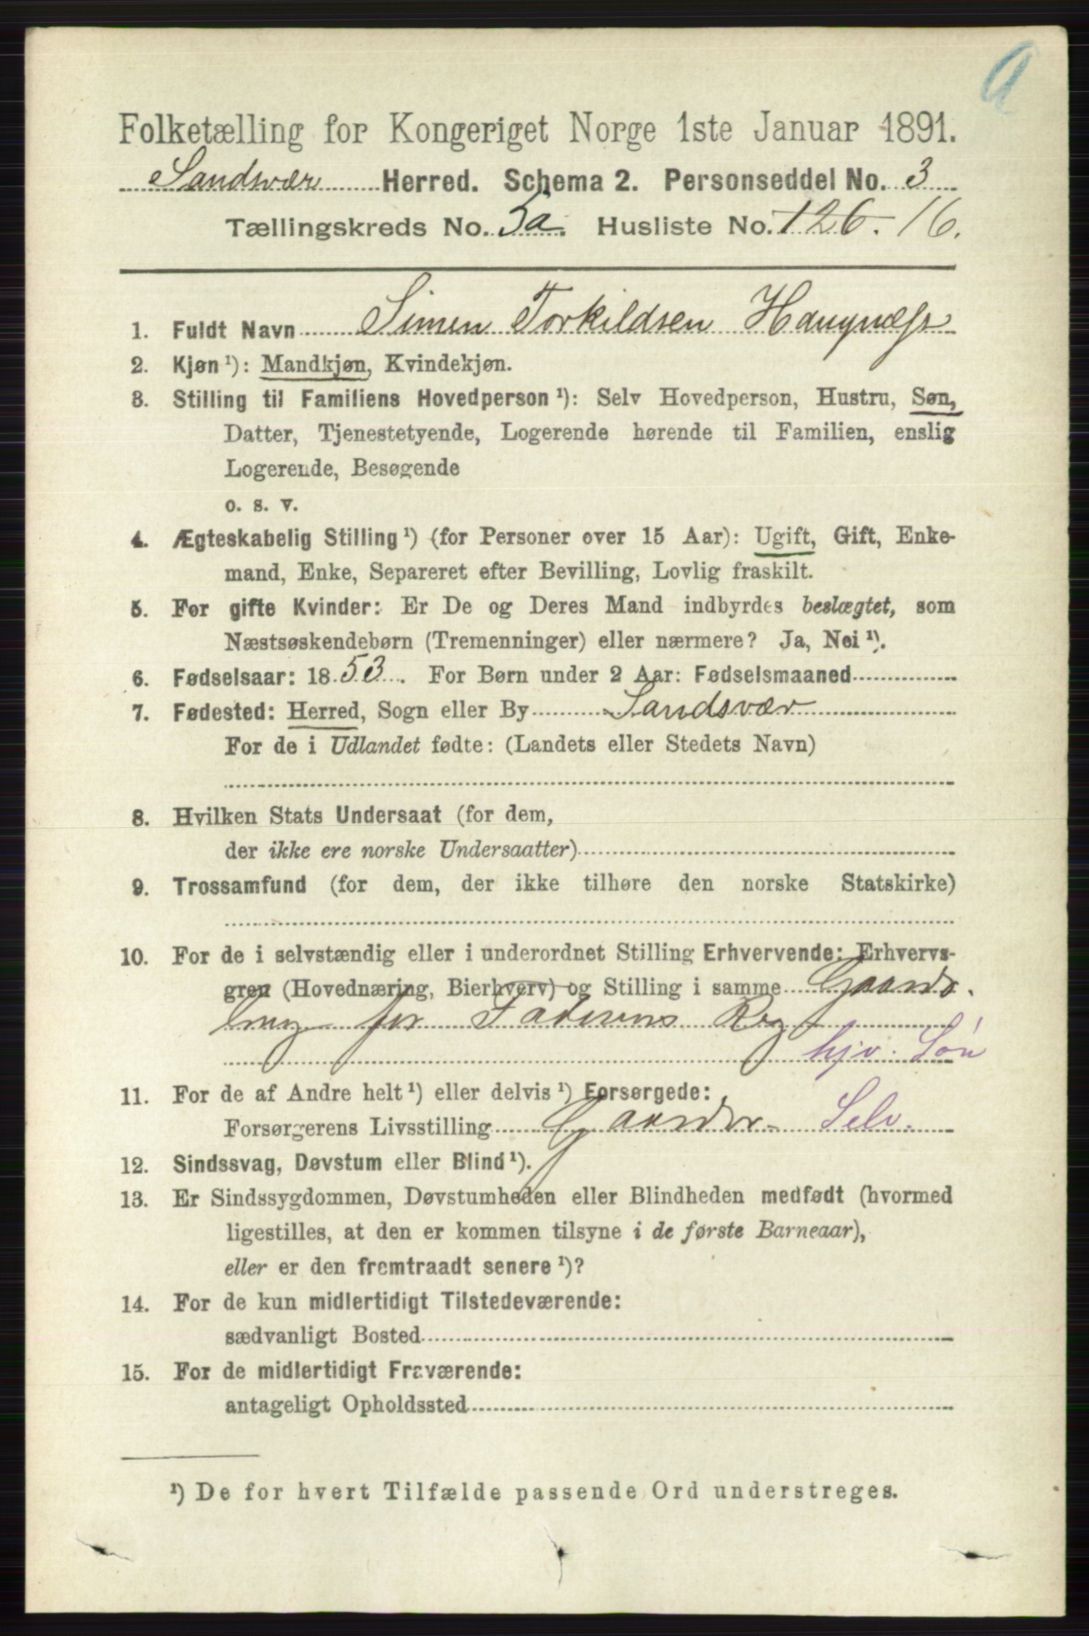 a
Folketælling for Kongeriget Norge 1ste Januar 1891.
Sandsvær Herred. Schema 2. Personseddel No. 3
Tællingskreds No. 5a. Husliste No. 126. 16.
1. Fuldt Navn Simen Torkildsen Haugnæss
2. Kjøn ¹): Mandkjøn, Kvindekjøn.
3. Stilling til Familiens Hovedperson ¹): Selv Hovedperson, Hustru, Søn,
Datter, Tjenestetyende, Logerende hørende til Familien, enslig
Logerende, Besøgende
o. s. v.
4. Ægteskabelig Stilling ¹) (for Personer over 15 Aar): Ugift, Gift, Enke-
mand, Enke, Separeret efter Bevilling, Lovlig fraskilt.
5. For gifte Kvinder: Er De og Deres Mand indbyrdes beslægtet, som
Næstsøskendebørn (Tremenninger) eller nærmere? Ja, Nei ¹).
6. Fødselsaar: 1853. For Børn under 2 Aar: Fødselsmaaned
7. Fødested: Herred, Sogn eller By Sandsvær
For de i Udlandet fødte: (Landets eller Stedets Navn)
8. Hvilken Stats Undersaat (for dem,
der ikke ere norske Undersaatter)
9. Trossamfund (for dem, der ikke tilhøre den norske Statskirke)
10. For de i selvstændig eller i underordnet Stilling Erhvervende: Erhvervs-
gren (Hovednæring, Bierhverv) og Stilling i samme Gaards-
brug for Faderens Reg
hjv. Søn
11. For de af Andre helt ¹) eller delvis ¹) Forsørgede:
Forsørgerens Livsstilling Gaardbr. Selv.
12. Sindssvag, Døvstum eller Blind ¹).
13. Er Sindssygdommen, Døvstumheden eller Blindheden medfødt (hvormed
ligestilles, at den er kommen tilsyne i de første Barneaar),
eller er den fremtraadt senere ¹)?
14. For de kun midlertidigt Tilstedeværende:
sædvanligt Bosted
15. For de midlertidigt Fraværende:
antageligt Opholdssted
¹) De for hvert Tilfælde passende Ord understreges.